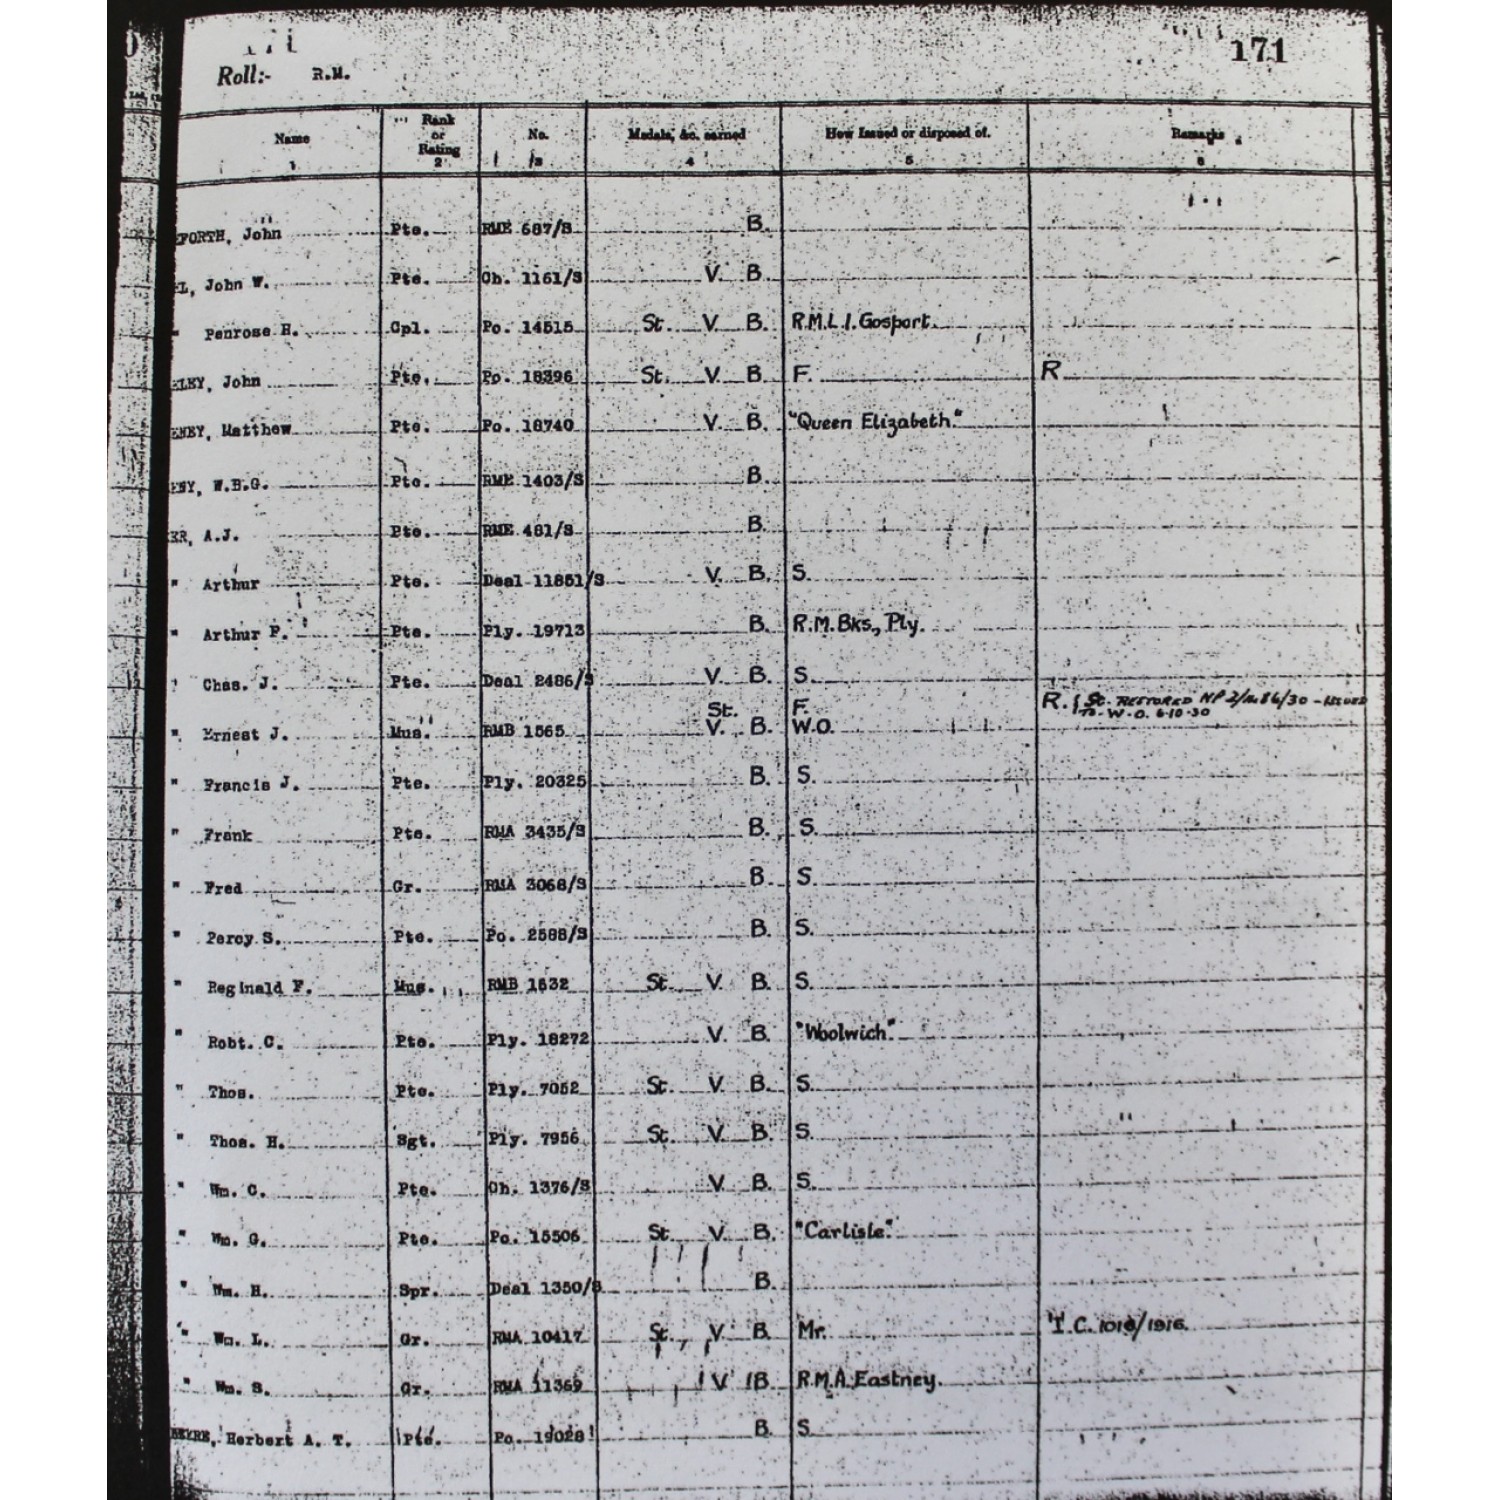 171
Roll:- R.M.
Name Rank or Rating No. Medals, &c. earned How Issued or disposed of. Remarks
1 2 3 4 5 6
FORTH, John Pte. RME 687/S B.
L, John W. Pte. Ch. 1161/S V. B.
" Penrose H. Cpl. Po. 14515 St. V. B. R.M.L.I. Gosport.
LEY, John Pte. Po. 18396 St. V. B. F. R
ENEY, Matthew Pte. Po. 18740 V. B. "Queen Elizabeth."
ESY, W.B.G. Pte. RME 1403/S B.
ER, A.J. Pte. RME 481/S B.
" Arthur Pte. Deal 11851/S V. B. S.
" Arthur P. Pte. Ply. 19713 B. R.M. Bks., Ply.
" Chas. J. Pte. Deal 2486/S V. B. S.
" Ernest J. Mus. RMB 1565 St. V. B. F. W.O. R. { St. RESTORED NP 2/ 86/30 - ISSUED TO W.O. 6-10-30
" Francis J. Pte. Ply. 20325 B. S.
" Frank Pte. RMA 3435/S B. S.
" Fred Gr. RMA 3068/S B. S.
" Percy S. Pte. Po. 2588/S B. S.
" Reginald F. Mus. RMB 1632 St. V. B. S.
" Robt. C. Pte. Ply. 18272 V. B. "Woolwich."
" Thos. Pte. Ply. 7052 St. V. B. S.
" Thos. H. Sgt. Ply. 7956 St. V. B. S.
" Wm. C. Pte. Ch. 1376/S V. B. S.
" Wm. G. Pte. Po. 15506 St. V. B. "Carlisle."
" Wm. H. Spr. Deal 1350/S B.
" Wm. L. Gr. RMA 10417 St. V. B. Mr. T.C. /1916.
" Wm. S. Gr. RMA 11369 V B. R.M.A. Eastney.
Herbert A. T. Pte. Po. 19028 B. S.